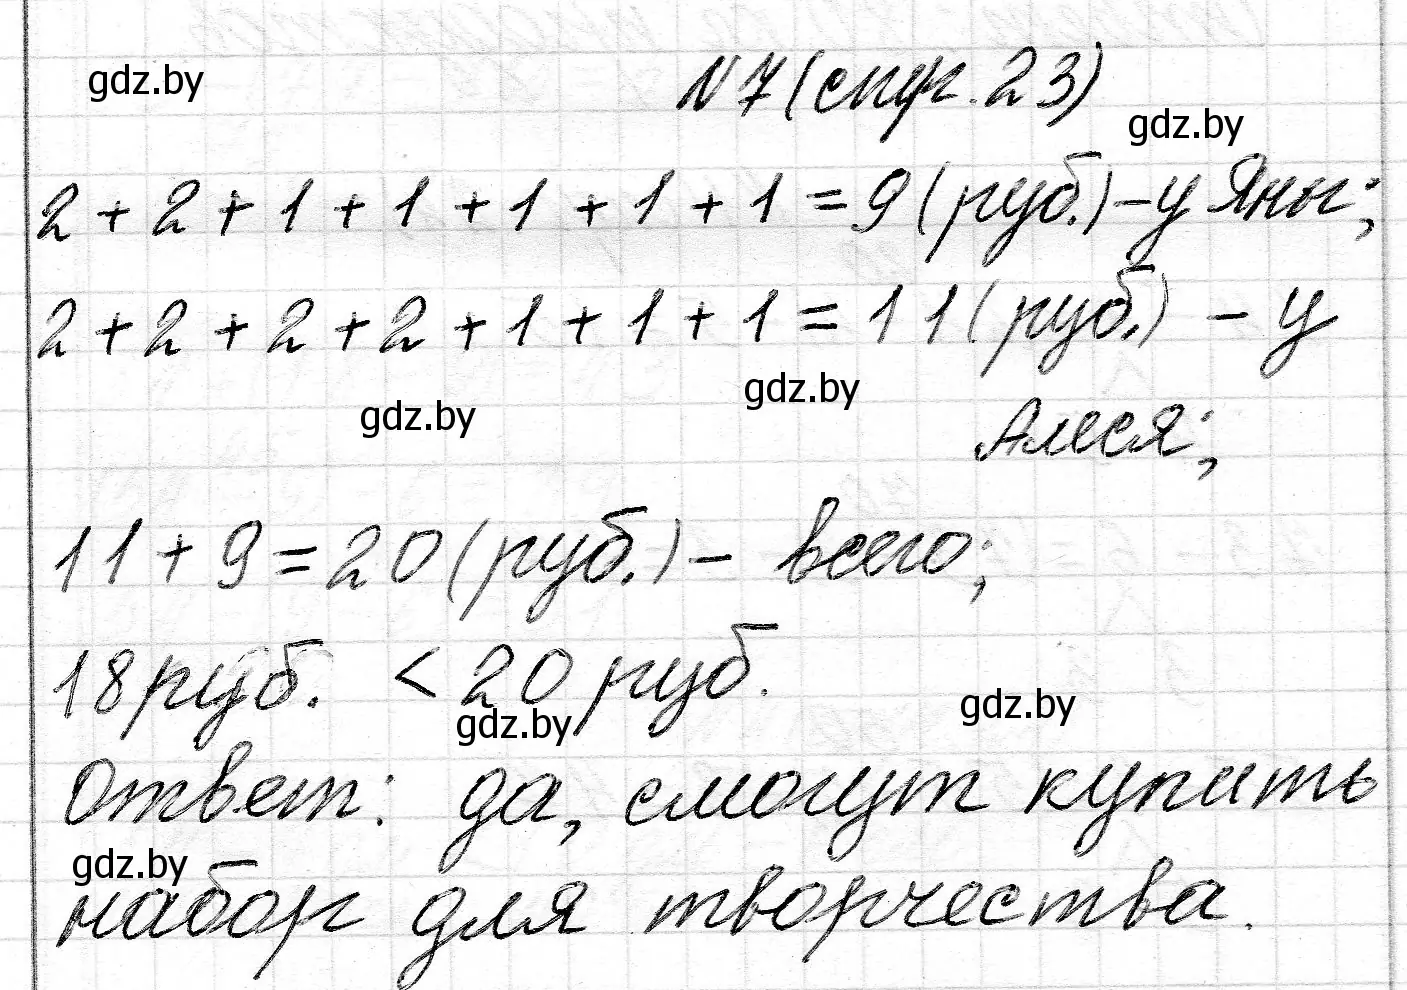 gdz.by
N7 (стр. 23)
gdz.by
2 + 2 + 1 + 1 + 1 + 1 + 1 = 9 (руб.) - у Яны;
2 + 2 + 2 + 2 + 1 + 1 + 1 = 11 (руб.) - у
gdz.by gdz.by
Алеся;
11 + 9 = 20 (руб.) - всего;
18 руб. < 20 руб.
gdz.by gdz.by
Ответ: да, смогут купить
gdz.by
набор для творчества.